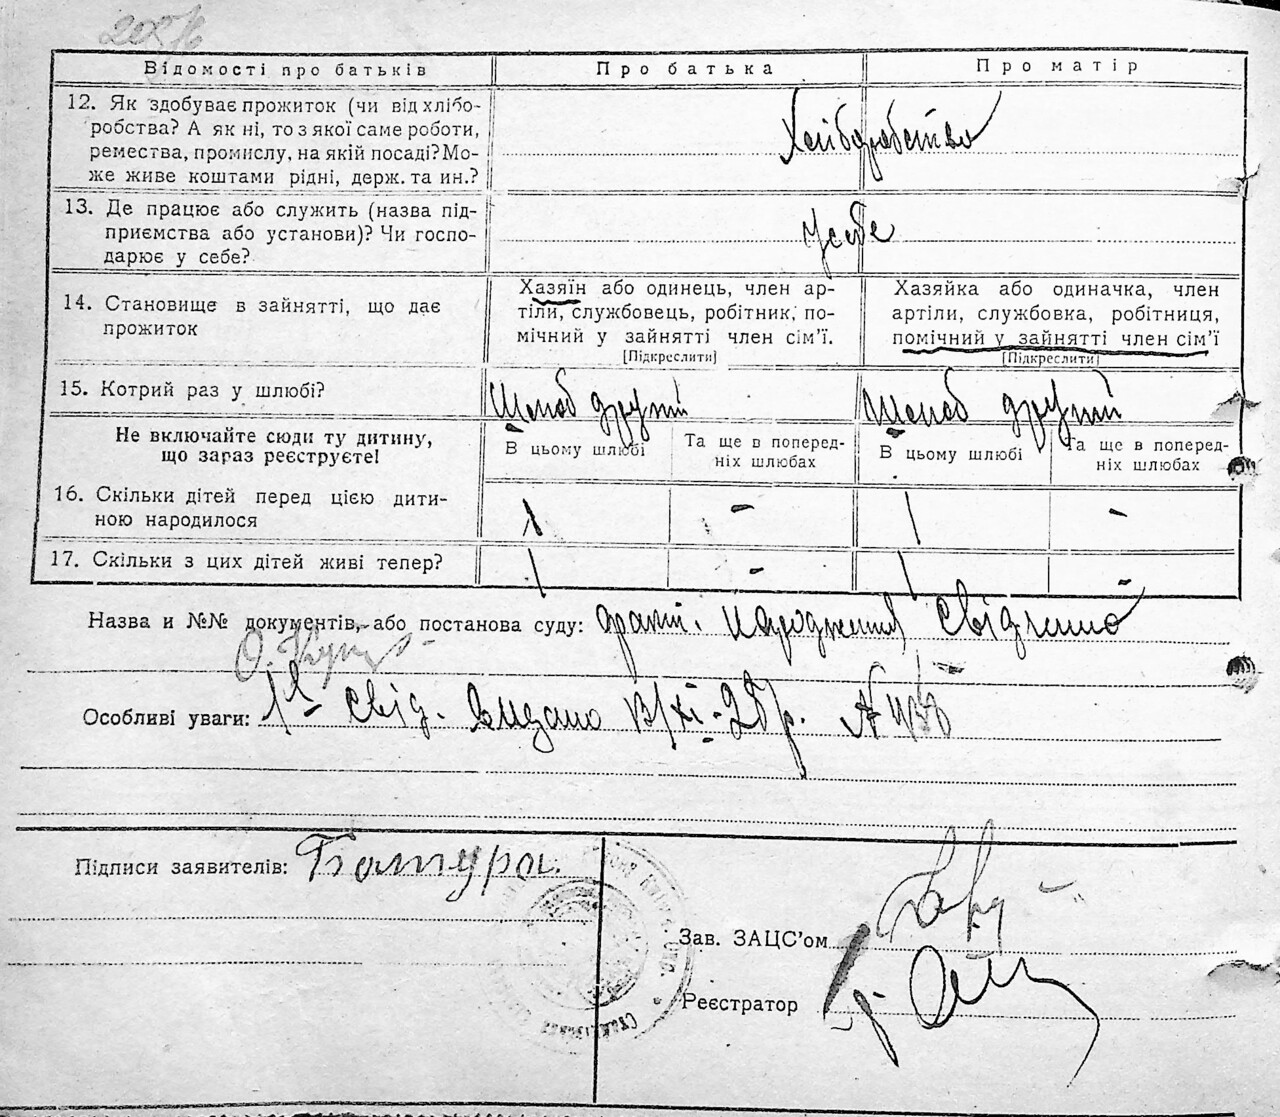 Відомості про батьків Про батька Про матір
12. Як здобуває прожиток (чи від хлібо-
робства? А як ні, то з якої саме роботи,
ремества, промислу, на якій посаді? Мо-
же живе коштами рідні, держ. та ин.?
Хліборобство
13. Де працює або служить (назва під-
приємства або установи)? Чи госпо-
дарює у себе?
У себе
14. Становище в зайнятті, що дає
прожиток
Хазяїн або одинець, член ар-
тіли, службовець, робітник, по-
мічний у зайнятті член сім'ї.
[Підкреслити]
Хазяйка або одиначка, член
артіли, службовка, робітниця,
помічний у зайнятті член сім'ї
[Підкреслити]
15. Котрий раз у шлюбі?
Шлюб другий Шлюб другий
Не включайте сюди ту дитину,
що зараз реєструєте!
В цьому шлюбі
Та ще в поперед-
ніх шлюбах
В цьому шлюбі
Та ще в поперед-
ніх шлюбах
16. Скільки дітей перед цією дити-
ною народилося
1 - 1 -
17. Скільки з цих дітей живі тепер?
1 - 1 -
Назва и №№ документів, або постанова суду: народження свідчено
Особливі уваги: свід. видано
Підписи заявителів: Батура.
Зав. ЗАЦС'ом
Реєстратор